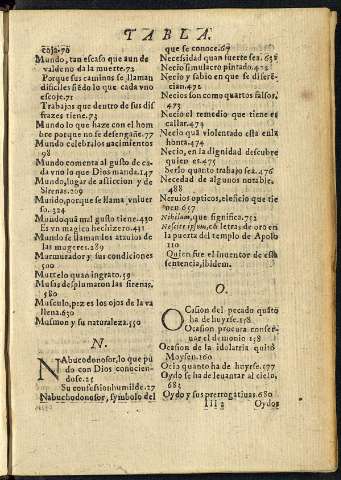 TABLA.
coja.70
Mundo, tan escaso que aun de
valde no da la muerte.73
Porque sus caminos se llaman
dificiles siẽdo lo que cada vno
escoje.71
Trabajos que dentro de sus dis
frazes tiene.73
Mundo lo que haze con el hom
bre porque no se desengañe.77
Mundo celebra los nacimientos
98
Mundo comenta al gusto de ca-
da vno lo que Dios manda.147
Mundo, lugar de afliccion y de
Sirenas.209
Mundo, porque se llama vniuer
so.324
Mundo quã mal gusto tiene.430
Es vn magico hechizero.431
Mundo se llaman los atauios de
las mugeres.289
Murmurador y sus condiciones
500
Murtelo quan ingrato.59
Musas desplumaron las sirenas.
580
Musculo, pez es los ojos de la va
llena.630
Musmon y su naturaleza.550
N.
Nabucodonosor, lo que pu
do con Dios conocien-
dose.25
Su confession humilde.27
Nabuchodonosor, symbolo del
que se conoce.67
Necessidad quan fuerte sea.652
Necio simulacro pintado.422
Necio y sabio en que se diferẽ-
cian.472
Necios son como quartos falsos.
473
Necio el remedio que tiene es
callar.474
Necio quã violentado està en la
honra.474
Necio, en la dignidad descubre
quien es.475
Serlo quanto trabajo sea.476
Necedad de algunos notable.
488
Neruios opticos, eleficio que tie
nen.657
Nihilum, que significa.752
Nescite ipsum, cõ letras de oro en
la puerta del templo de Apolo
110
Quien fue el inuentor de esta
sentencia, ibidem.
O.
Ocasion del pecado quãto
ha de huyrse.158
Ocasion procura conser-
uar el demonio.158
Ocasion de la idolatria quitò
Moysen.160
Ocio quanto ha de huyrse.177
Oydo se ha de leuantar al cielo.
683
Oydo y sus prerrogatiuas.680
Iii 2
Oydos